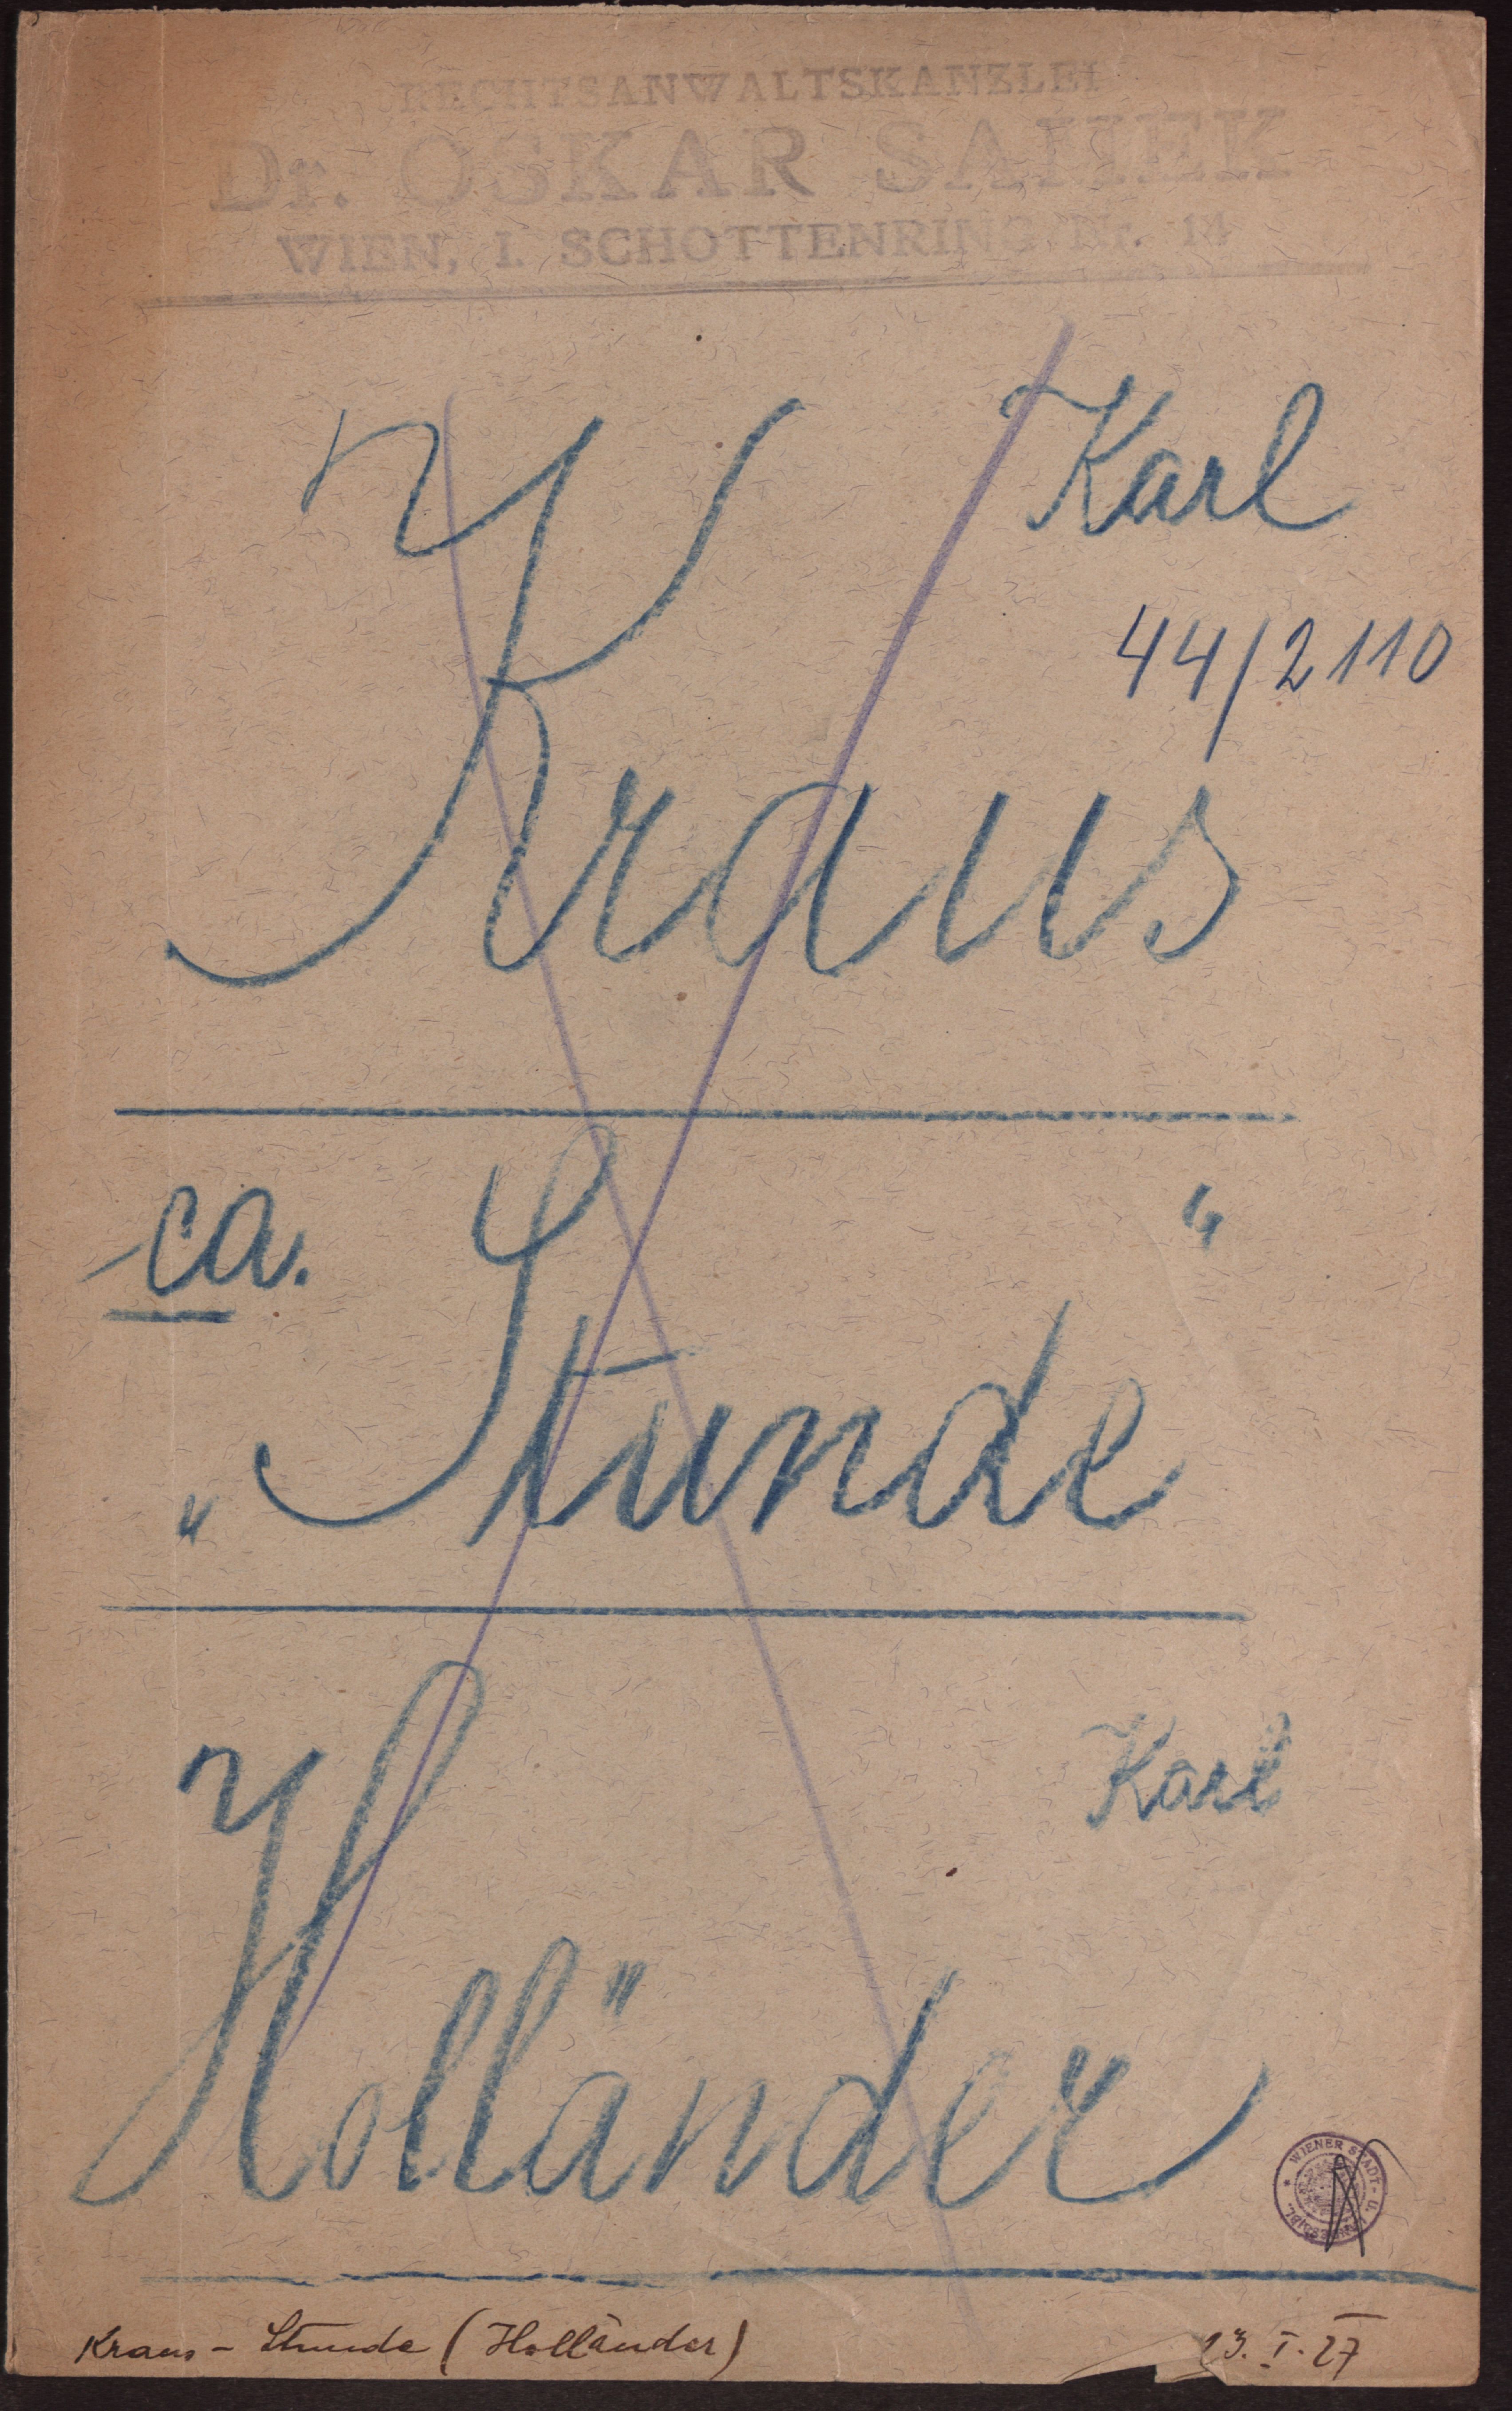 RECHTSANWALTSKANZLEI
Dr. OSKAR SAMEK
WIEN, I. SCHOTTENRING Nr. 14
Karl
44/2110
Kraus
ca.
„Stunde“
Karl
Holländer
WIENER STADT- U. LANDESBIBL.
Kraus – Stunde (Holländer)
13. I. 27